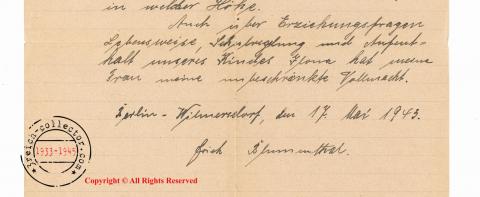 in welcher Höhe.
Auch über Erziehungsfragen
Lebensweise, Schulregelung und Aufent-
halt unseres Kindes Ilona hat meine
Frau meine unbeschränkte Vollmacht.
Berlin-Wilmersdorf, den 17. Mai 1943.
Erich Blumenthal.
3reich-collector.com
1933-1945
Copyright © All Rights Reserved